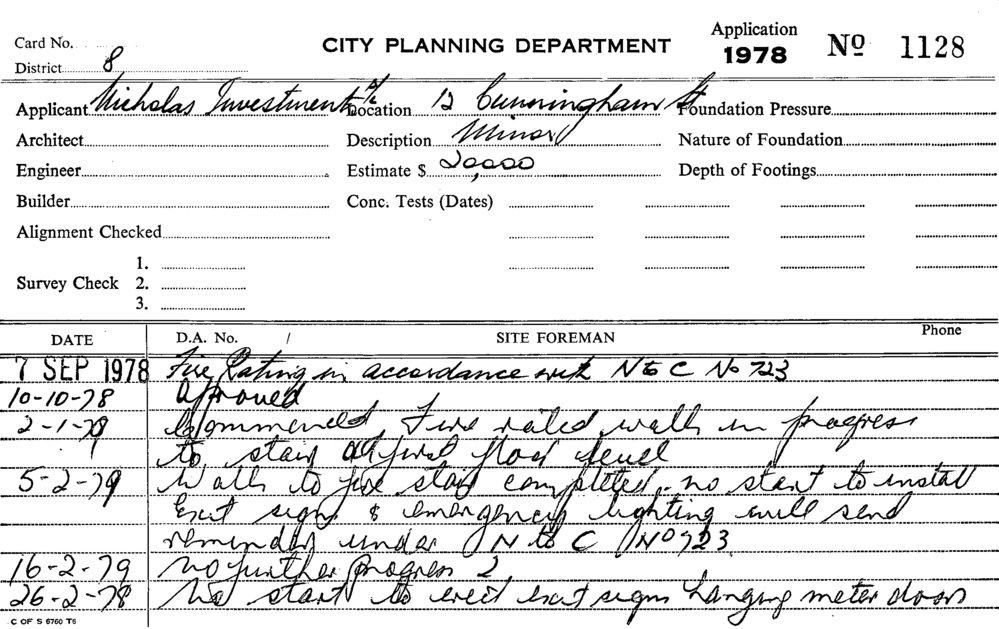 Card No.
CITY PLANNING DEPARTMENT
Application
1978
No 1128
District 8
Applicant Nicholas Investment
Location 12 Cunningham St
Foundation Pressure
Architect
Description Minor
Nature of Foundation
Engineer
Estimate $ 20,000
Depth of Footings
Builder
Conc. Tests (Dates)
Alignment Checked
1.
Survey Check 2.
3.
DATE D.A. No. / SITE FOREMAN Phone
7 SEP 1978 Fire Rating in accordance with N to C No 723
10-10-78 Approved
2-1-79 Commenced Fire rated walls in progress
to stairs at first floor level
5-2-79 Walls to fire stairs completed no start to install
Exit signs & emergency lighting will send
reminder under N to C No 723
16-2-79 No further progress 2
26-2-78 No start to erect exit signs hanging meter doors
C OF S 6760 T6